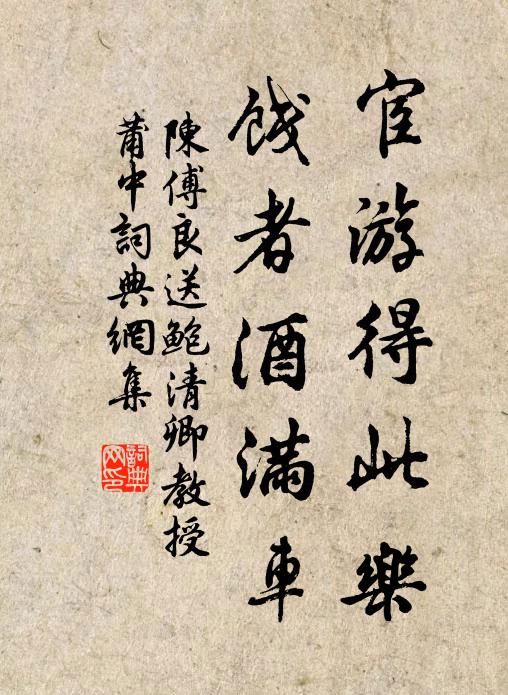 宦游得此樂
餞者酒滿車
陳傅良送鮑清卿教授
莆中詞典網集
詞典網印